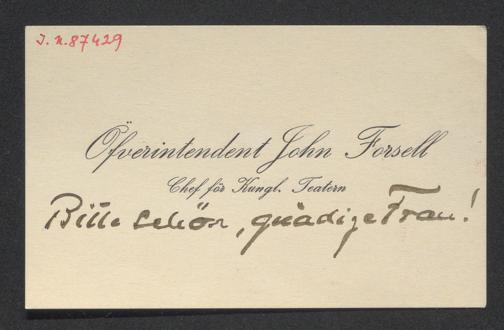 J.N.87429
Öfverintendent John Forsell
Chef för Kungl. Teatern
Bitte schön, gnädige Frau!